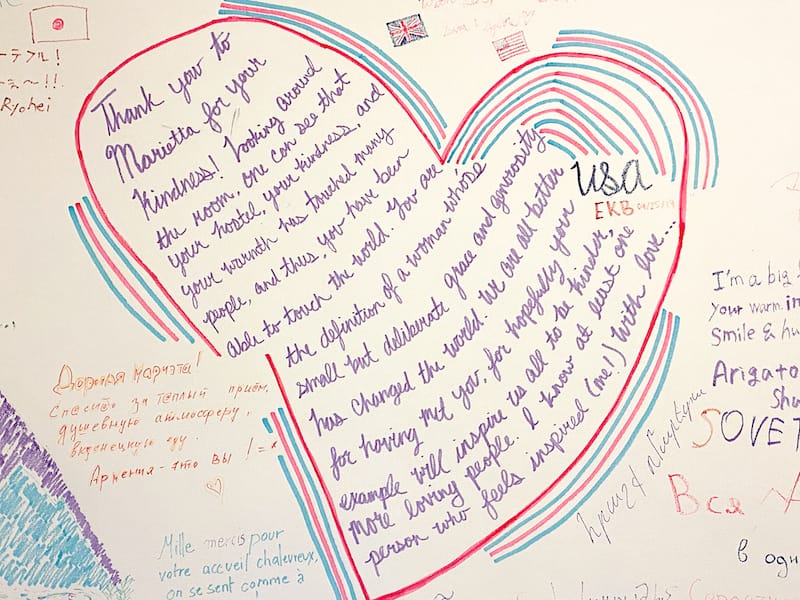 ーテフル!
ーュ〜!!.
Ryohei
Thank you to
Marietta for your
kindness! Looking around
the room, one can see that
your hostel, your kindness, and
your warmth has touched many
people, and thus, you have been
able to touch the world. You are
the definition of a woman whose
small but deliberate grace and generosity
has changed the world. We are all better
for having met you, for hopefully your
example will inspire us all to be kinder,
more loving people. I know at least one
person who feels inspired (me!) With love...
USA
EKB 04/25/19
Дорогая Мариэта!
Спасибо за теплый приём,
душевную атмосферу,
вкуснецкую еду.
Армения-это вы!
Mille mercis pour
votre accueil chaleureux,
on se sent comme à
I'm a big
your warm.
Smile & hu
Arigato
Shu
SOVET
Вся
в одн